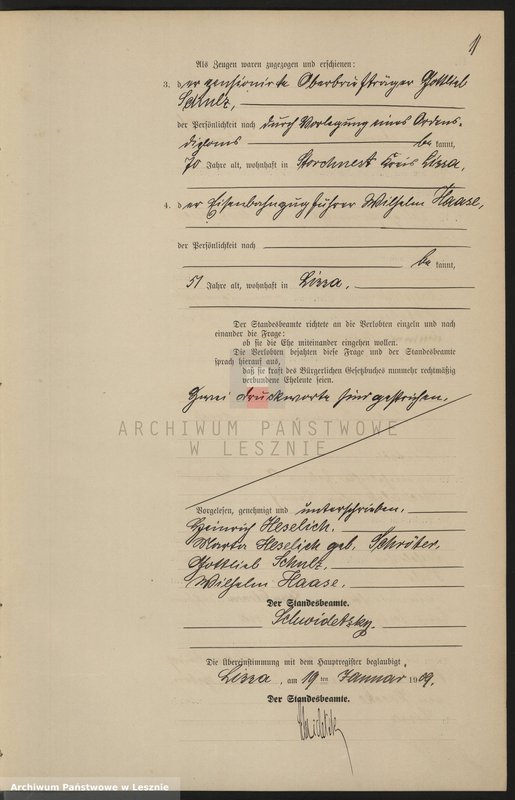 11
Als Zeugen waren zugezogen und erschienen:
3. der pensionirte Oberbriefträger Gottlieb
Schulz,
der Persönlichkeit nach durch Vorlegung eines Ordens-
diploms bekannt,
70 Jahre alt, wohnhaft in Storchnest Kreis Lissa,
4. der Eisenbahnzugführer Wilhelm Haase,
der Persönlichkeit nach
bekannt,
51 Jahre alt, wohnhaft in Lissa.
Der Standesbeamte richtete an die Verlobten einzeln und nach
einander die Frage:
ob sie die Ehe miteinander eingehen wollen.
Die Verlobten bejahten diese Frage und der Standesbeamte
sprach hierauf aus,
daß sie kraft des Bürgerlichen Gesetzbuches nunmehr rechtmäßig
verbundene Eheleute seien.
Zwei Druckworte sind gestrichen.
ARCHIWUM PAŃSTWOWE
W LESZNIE
Vorgelesen, genehmigt und unterschrieben.
Heinrich Heselich.
Marta Heselich geb. Schröter.
Gottlieb Schulz.
Wilhelm Haase.
Der Standesbeamte.
Schwidetzky.
Die Übereinstimmung mit dem Hauptregister beglaubigt
Lissa, am 19ten Januar 1909.
Der Standesbeamte.
Archiwum Państwowe w Lesznie